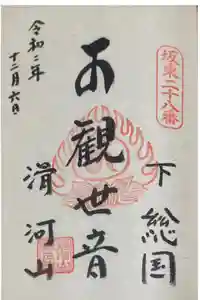 坂東二十八番
下総国
觀世音
滑河山
令和二年
十二月六日